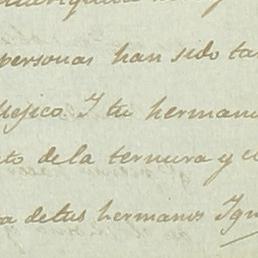 personas han sido ta
Mejico. Y tu herman
to de la ternura y c
a de tus hermanos Ign